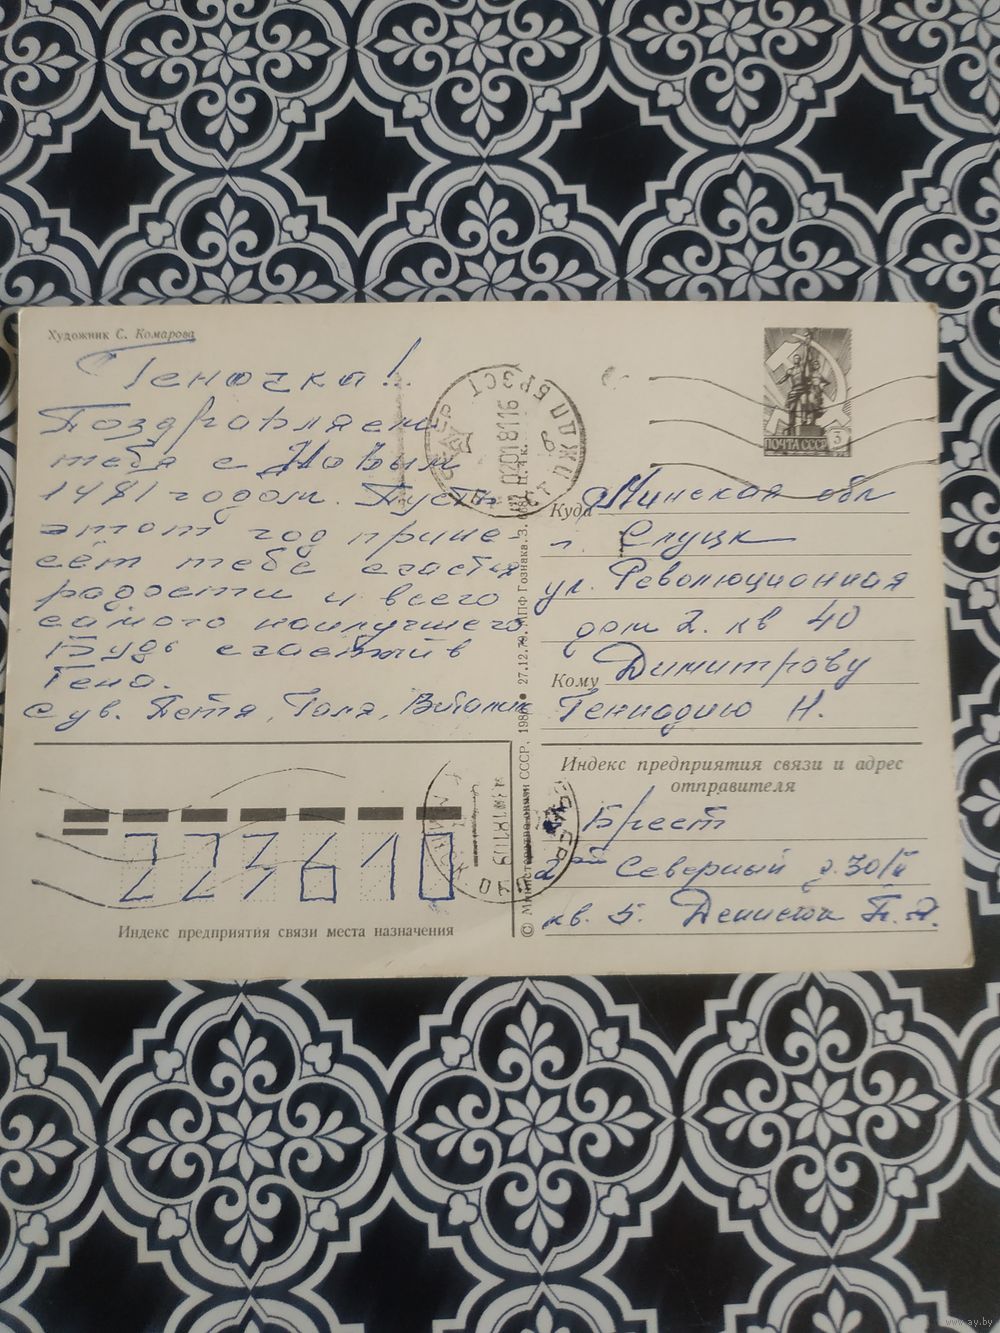 Художник С. Комарова
Геночка!
Поздравляем
тебя с Новым
1981 годом. Пусть
этот год прине-
сёт тебе счастья
радости и всего
самого наилучшего
Будь счастлив
Гена.
Петя, Галя, Виталик
ПОЧТА СССР 3
Куда Минская обл
г Слуцк
ул. Революционная
дом 2. кв 40
Кому Димитрову
Геннадию Н.
Индекс предприятия связи и адрес
отправителя
Брест
Северный д. 30/
кв. 5.
223610
Индекс предприятия связи места назначения
© Министерство связи СССР, 1980 ● 27.12.79. МПФ Гознака. З.
БРЭСТ
www.ay.by